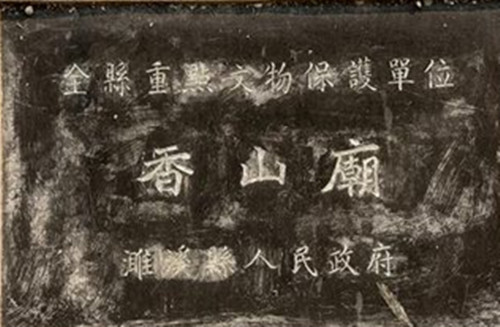 全縣重點文物保護單位
香山廟
濉溪縣人民政府